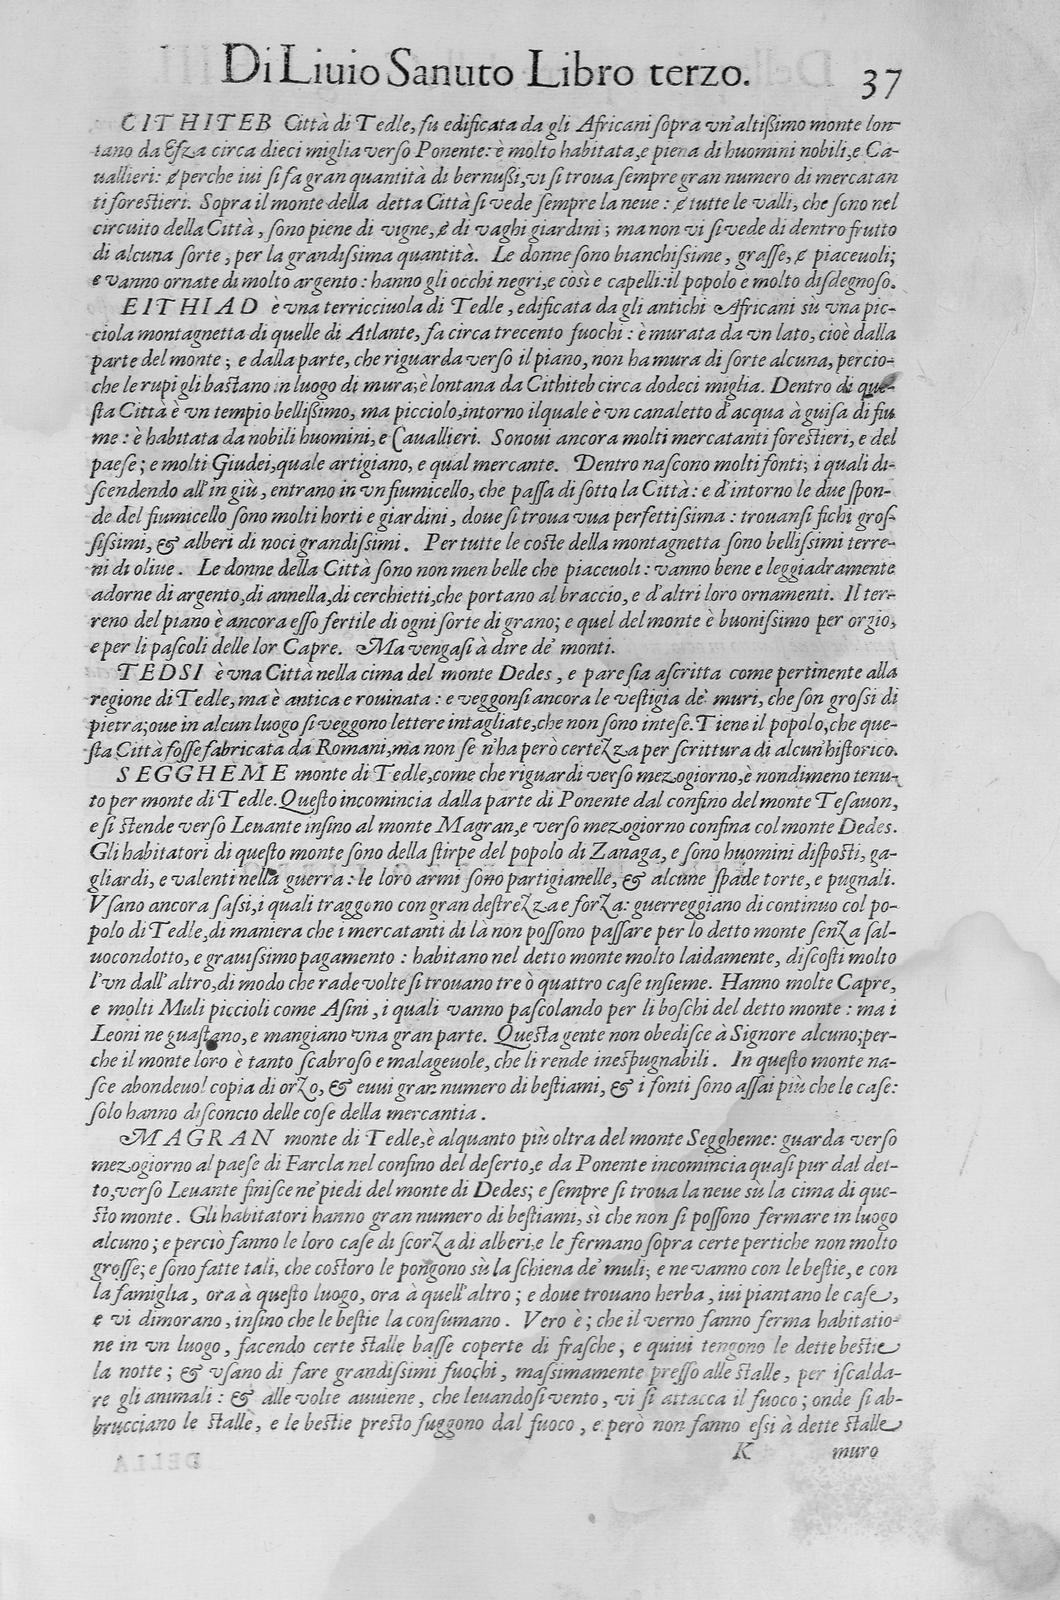 Di Liuio Sanuto Libro terzo. 37
CITHITEB Città di Tedle, fu edificata da gli Africani sopra vn'altißimo monte lon-
tano da Esza circa dieci miglia verso Ponente: è molto habitata, e piena di huomini nobili, e Ca-
uallieri: & perche iui si fa gran quantità di bernußi, vi si troua sempre gran numero di mercatan
ti forestieri. Sopra il monte della detta Città si vede sempre la neue: & tutte le valli, che sono nel
circuito della Città, sono piene di vigne, & di vaghi giardini; ma non vi si vede di dentro frutto
di alcuna sorte, per la grandissima quantità. Le donne sono bianchissime, grasse, & piaceuoli;
e vanno ornate di molto argento: hanno gli occhi negri, e così e capelli: il popolo e molto disdegnoso.
EITHIAD è vna terricciuola di Tedle, edificata da gli antichi Africani sù vna pic-
ciola montagnetta di quelle di Atlante, fa circa trecento fuochi: è murata da vn lato, cioè dalla
parte del monte; e dalla parte, che riguarda verso il piano, non ha mura di sorte alcuna, percio-
che le rupi gli bastano in luogo di mura; è lontana da Cithiteb circa dodeci miglia. Dentro di que-
sta Città è vn tempio bellißimo, ma picciolo, intorno il quale è vn canaletto d'acqua à guisa di fiu
me: è habitata da nobili huomini, e Cauallieri. Sonoui ancora molti mercatanti forestieri, e del
paese; e molti Giudei, quale artigiano, e qual mercante. Dentro nascono molti fonti; i quali di-
scendendo all'in giù, entrano in vn fiumicello, che passa di sotto la Città: e d'intorno le due spon-
de del fiumicello sono molti horti e giardini, doue si troua vua perfettissima: trouansi fichi gros-
sissimi, & alberi di noci grandissimi. Per tutte le coste della montagnetta sono bellissimi terre-
ni di oliue. Le donne della Città sono non men belle che piaceuoli: vanno bene e leggiadramente
adorne di argento, di annella, di cerchietti, che portano al braccio, e d'altri loro ornamenti. Il ter-
reno del piano è ancora esso fertile di ogni sorte di grano; e quel del monte è buonissimo per orgio,
e per li pascoli delle lor Capre. Ma vengasi à dire de' monti.
TEDSI è vna Città nella cima del monte Dedes, e pare sia ascritta come pertinente alla
regione di Tedle, ma è antica e rouinata: e veggonsi ancora le vestigia de' muri, che son grossi di
pietra; oue in alcun luogo si veggono lettere intagliate, che non sono intese. Tiene il popolo, che que-
sta Città fosse fabricata da Romani, ma non se n'ha però certezza per scrittura di alcun'historico.
SEGGHEME monte di Tedle, come che riguardi verso mezogiorno, è nondimeno tenu-
to per monte di Tedle. Questo incomincia dalla parte di Ponente dal confino del monte Tesauon,
e si stende verso Leuante insino al monte Magran, e verso mezogiorno confina col monte Dedes.
Gli habitatori di questo monte sono della stirpe del popolo di Zanaga, e sono huomini disposti, ga-
gliardi, e valenti nella guerra: le loro armi sono partigianelle, & alcune spade torte, e pugnali.
Vsano ancora sassi, i quali traggono con gran destrezza e forza: guerreggiano di continuo col po-
polo di Tedle, di maniera che i mercatanti di là non possono passare per lo detto monte senza sal-
uocondotto, e grauissimo pagamento: habitano nel detto monte molto laidamente, discosti molto
l'vn dall'altro, di modo che rade volte si trouano tre ò quattro case insieme. Hanno molte Capre,
e molti Muli piccioli come Asini, i quali vanno pascolando per li boschi del detto monte: ma i
Leoni ne guastano, e mangiano vna gran parte. Questa gente non obedisce à Signore alcuno; per-
che il monte loro è tanto scabroso e malageuole, che li rende inespugnabili. In questo monte na-
sce abondeuol copia di orzo, & euui gran numero di bestiami, & i fonti sono assai più che le case:
solo hanno disconcio delle cose della mercantia.
MAGRAN monte di Tedle, è alquanto più oltra del monte Seggheme: guarda verso
mezogiorno al paese di Farcla nel confino del deserto, e da Ponente incomincia quasi pur dal det-
to, verso Leuante finisce ne' piedi del monte di Dedes; e sempre si troua la neue sù la cima di que-
sto monte. Gli habitatori hanno gran numero di bestiami, sì che non si possono fermare in luogo
alcuno; e perciò fanno le loro case di scorza di alberi, e le fermano sopra certe pertiche non molto
grosse; e sono fatte tali, che costoro le pongono sù la schiena de' muli; e ne vanno con le bestie, e con
la famiglia, ora à questo luogo, ora à quell'altro; e doue trouano herba, iui piantano le case,
e vi dimorano, insino che le bestie la consumano. Vero è; che il verno fanno ferma habitatio-
ne in vn luogo, facendo certe stalle basse coperte di frasche; e quiui tengono le dette bestie
la notte; & vsano di fare grandissimi fuochi, massimamente presso alle stalle, per iscalda-
re gli animali: & alle volte auuiene, che leuandosi vento, vi si attacca il fuoco; onde si ab-
brucciano le stalle, e le bestie presto fuggono dal fuoco, e però non fanno essi à dette stalle
K muro